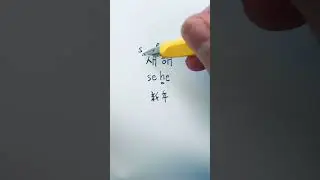 새해
se he
新年